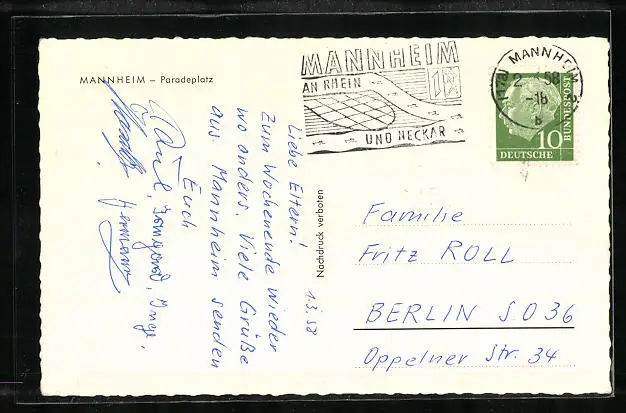 MANNHEIM – Paradeplatz
MANNHEIM
AN RHEIN
UND NECKAR
MANNHEIM
2 58
-18
DEUTSCHE
BUNDESPOST
10
1.3.58
Liebe Eltern!
Zum Wochenende wieder
wo anders. Viele Grüße
aus Mannheim senden
Euch
Paul, Irmgard, Inge,
Hermann
Nachdruck verboten
Familie
Fritz ROLL
BERLIN SO 36
Oppelner Str. 34